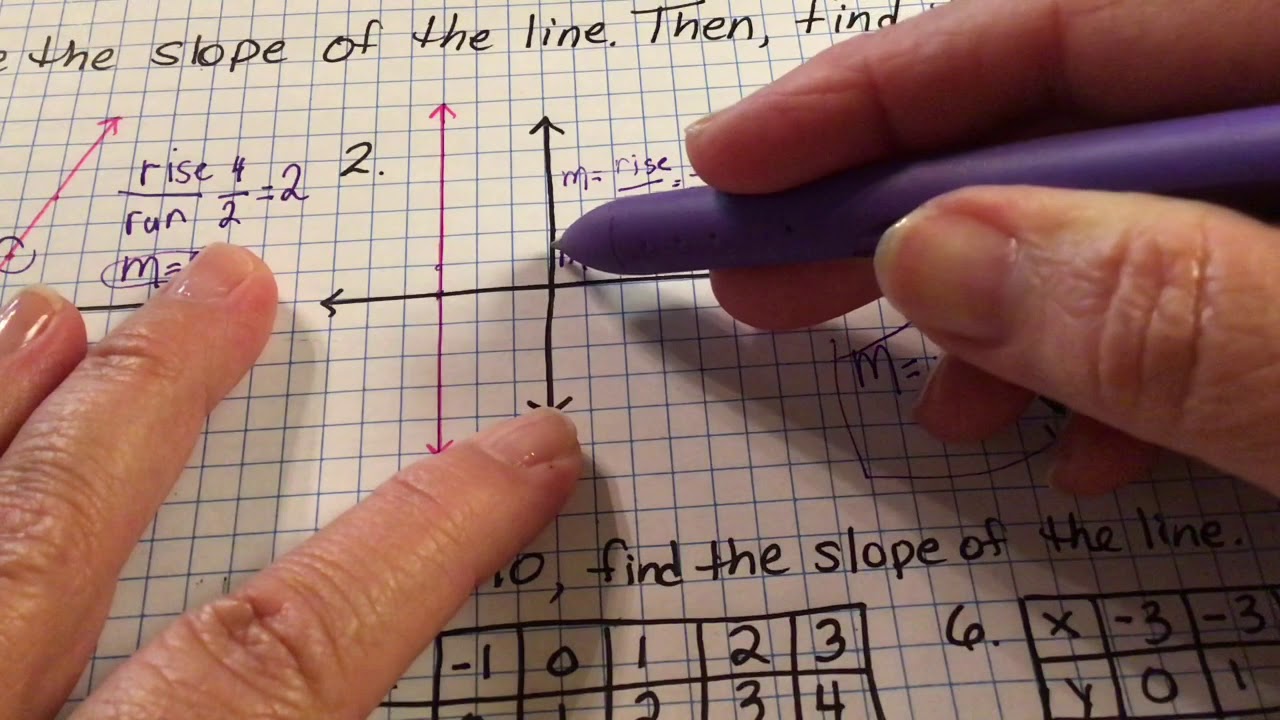 the slope of the line. Then, find
rise 4 = 2
run 2
m=
2.
m= rise =
m=
10, find the slope of the line.
-1 0 1 2 3
1 2 3 4
6. X -3 -3
Y 0 1